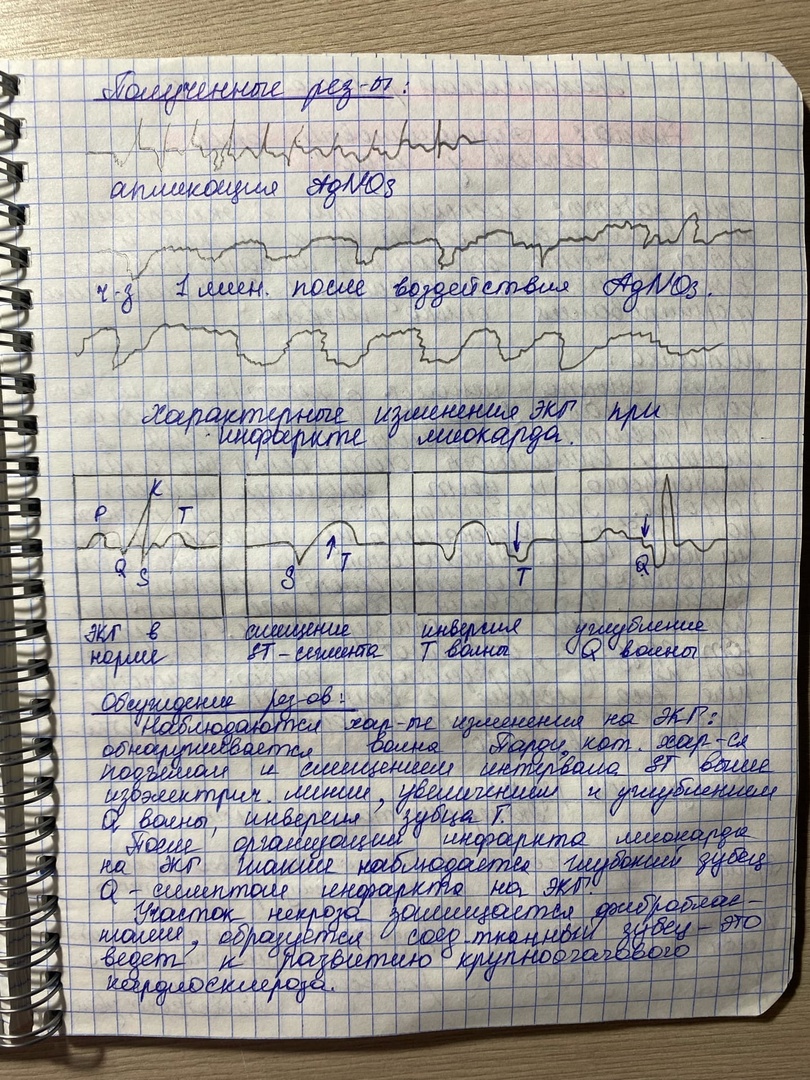 Полученные рез-ты:
апликация AgNO3
ч-з 1 мин. после воздействия AgNO3.
Характерные изменения ЭКГ при
инфаркте миокарда.
P R T Q S
S T
T
Q
ЭКГ в норме
смещение ST-сегмента
инверсия T волны
углубление Q волны
Обсуждение рез-ов:
Наблюдаются хар-ые изменения на ЭКГ:
обнаруживается волна Парди, кот. хар-ся
подъемом и смещением интервала ST выше
изоэлектрич. линии, увеличением и углублением
Q волны, инверсия зубца T.
После организации инфаркта миокарда
на ЭКГ также наблюдается глубокий зубец
Q - симптом инфаркта на ЭКГ.
Участок некроза замещается фиброблас-
тами, образуется соед.тканный зубец - это
ведет к развитию крупноочагового
кардиосклероза.